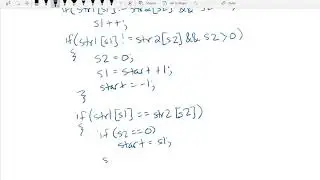 s1++;
if(str1[s1]!=str2[s2] && s2>0)
{
s2=0;
s1=start+1;
start=-1;
}
if(str1[s1]==str2[s2])
{ if(s2==0)
start=s1;
s